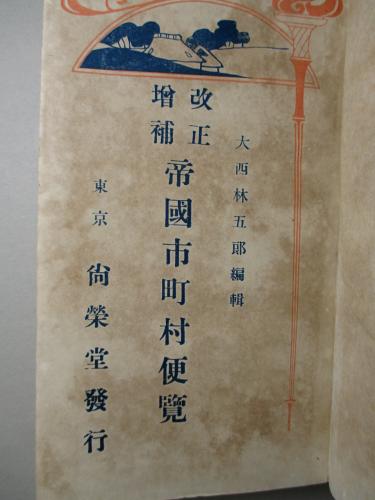 大西林五郎編輯
改正
增補
帝國市町村便覽
東京 尙榮堂發行